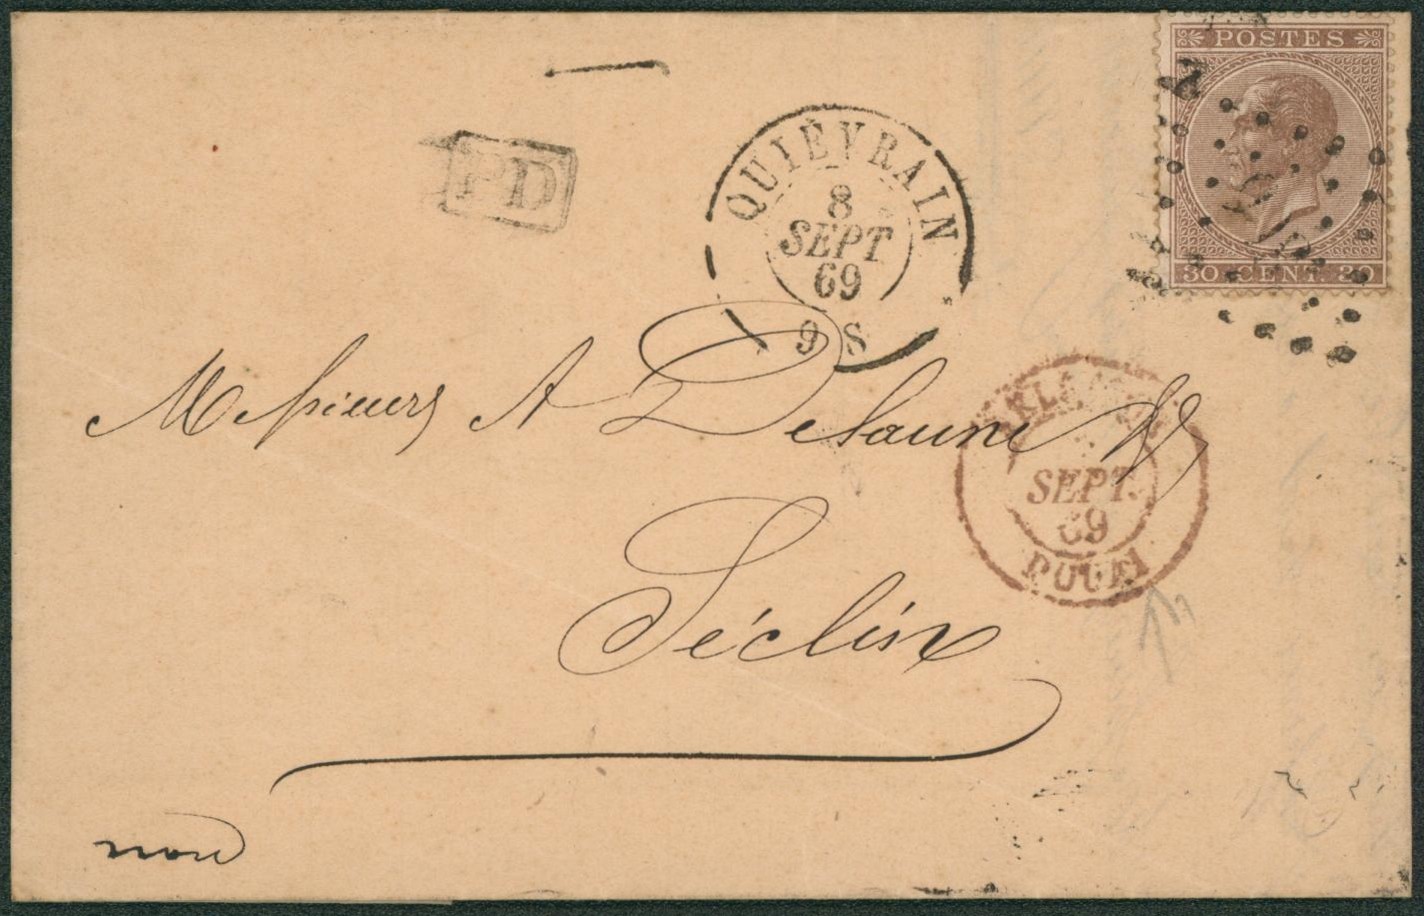 POSTES
30 CENT. 30
PD
QUIÈVRAIN
8
SEPT
69
9 S
Messieurs A Delaune
SEPT.
69
Séclin
nord